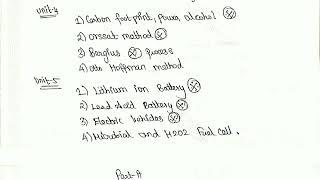 Unit-4
1) Carbon foot print, Power alcohol
2) Orssat method
3) Bergius process
4) Otto Hoffman method
Unit-5
1) Lithium ion Battery
2) Lead Acid Battery
3) Electric Vehicles
4) Microbial and H2O2 Fuel Cell.
Part-A